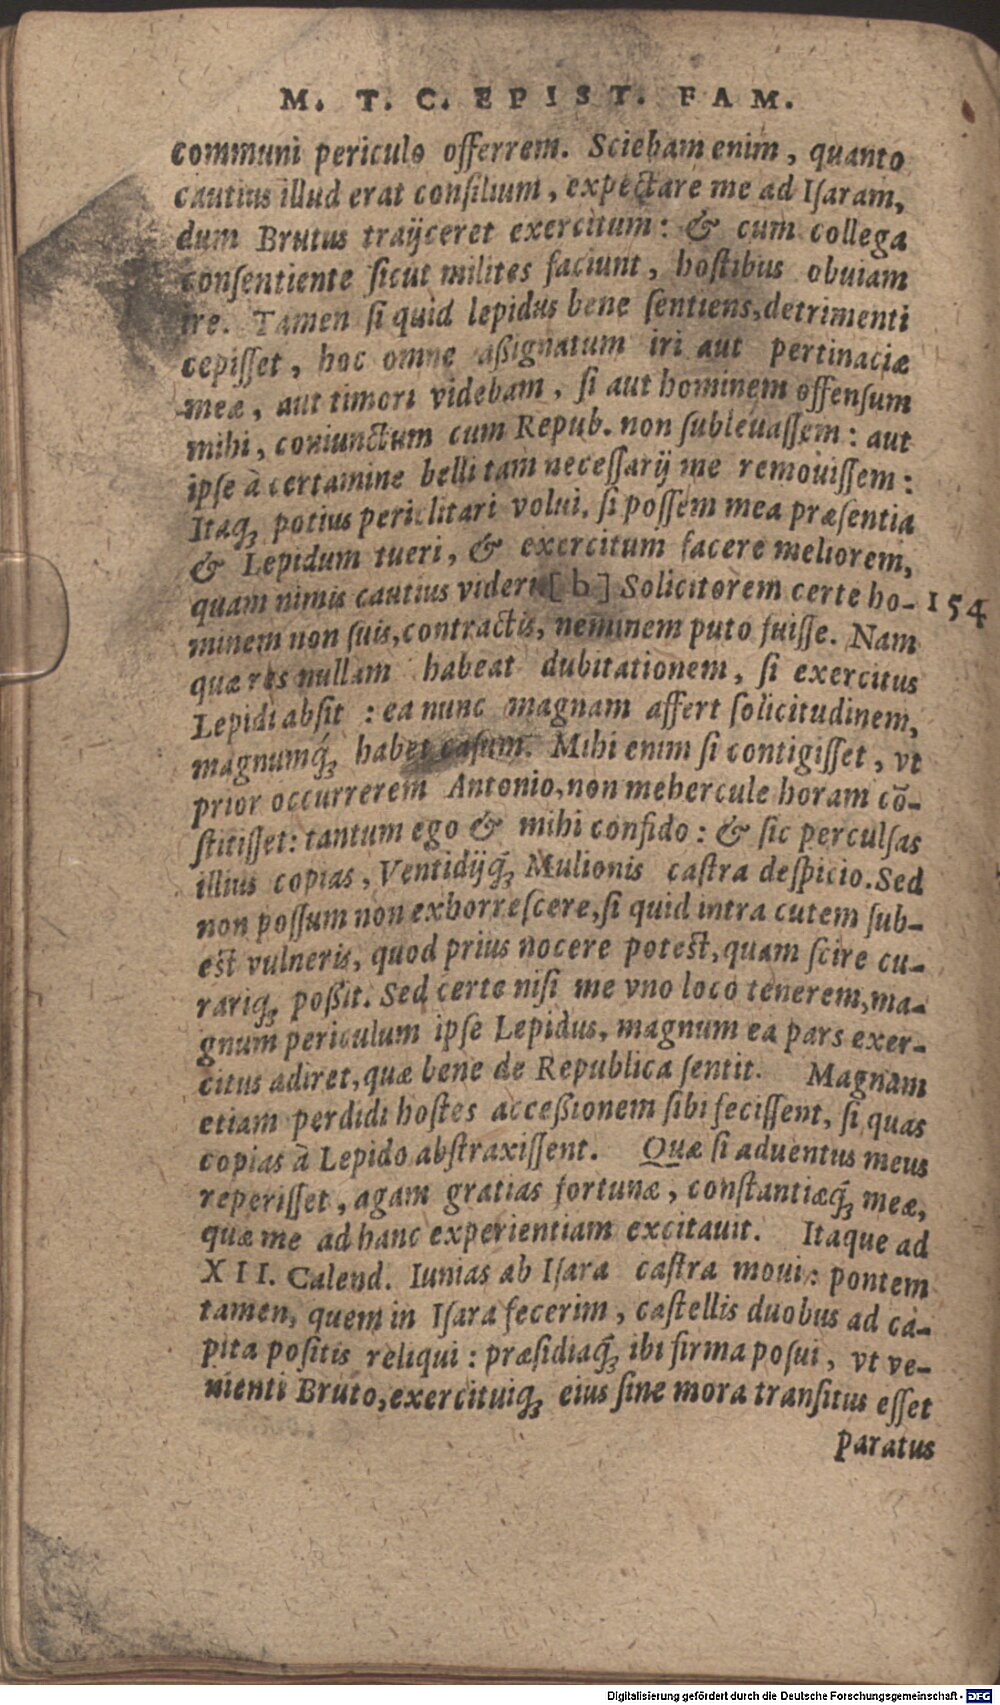 M. T. C. EPIST. FAM.
communi periculo offerrem. Sciebam enim, quanto
cautius illud erat consilium, expectare me ad Isaram,
dum Brutus traijceret exercitum: & cum collega
consentiente sicut milites faciunt, hostibus obuiam
ire. Tamen si quid lepidus bene sentiens, detrimenti
cepisset, hoc omne aßignatum iri aut pertinaciæ
meæ, aut timori videbam, si aut hominem offensum
mihi, coniunctum cum Repub. non subleuassem: aut
ipse à certamine belli tam necessarij me remouissem:
Itaq; potius periclitari volui, si possem mea præsentia
& Lepidum tueri, & exercitum facere meliorem,
quam nimis cautius videri [b] Solicitorem certe ho- 154
minem non suis, contractis, neminem puto fuisse. Nam
quæ res nullam habeat dubitationem, si exercitus
Lepidi absit : ea nunc magnam affert solicitudinem,
magnumq́; habet casum. Mihi enim si contigisset, vt
prior occurrerem Antonio, non mehercule horam cō-
stitisset: tantum ego & mihi confido: & sic perculsas
illius copias, Ventidijq́; Mulionis castra despicio. Sed
non possum non exhorrescere, si quid intra cutem sub-
est vulneris, quod prius nocere potest, quam scire cu-
rariq; poßit. Sed certe nisi me vno loco tenerem, ma-
gnum periculum ipse Lepidus, magnum ea pars exer-
citus adiret, quæ bene de Republica sentit. Magnam
etiam perdidi hostes acceßionem sibi fecissent, si quas
copias à Lepido abstraxissent. Quæ si aduentus meus
reperisset, agam gratias fortunæ, constantiæq́; meæ,
quæ me ad hanc experientiam excitauit. Itaque ad
XII. Calend. Iunias ab Isara castra moui: pontem
tamen, quem in Isara fecerim, castellis duobus ad ca-
pita positis reliqui : præsidiaq́; ibi firma posui, vt ve-
nienti Bruto, exercituiq; eius sine mora transitus esset
paratus
Digitalisierung gefördert durch die Deutsche Forschungsgemeinschaft - DFG